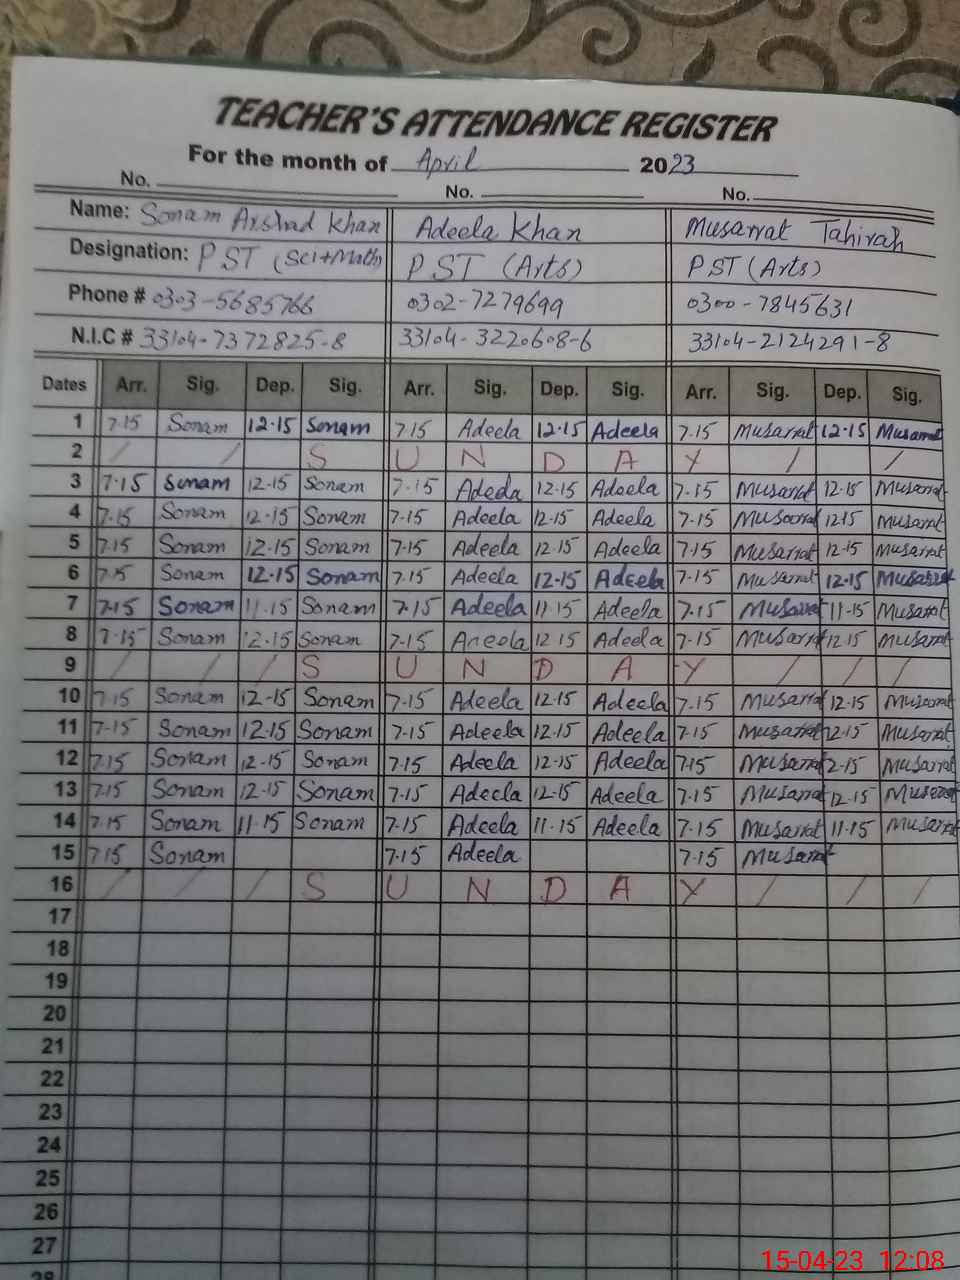 TEACHER'S ATTENDANCE REGISTER
For the month of April 2023
No. No. No.
Name: Sonam Arshad Khan Adeela Khan Musarrat Tahirah
Designation: PST (Sci+Math) PST (Arts) PST (Arts)
Phone # 0303-5685766 0302-7279699 0300-7845631
N.I.C # 33104-7372825-8 33104-3220608-6 33104-2124291-8
Dates Arr. Sig. Dep. Sig. Arr. Sig. Dep. Sig. Arr. Sig. Dep. Sig.
1 7.15 Sonam 12.15 Sonam 7.15 Adeela 12.15 Adeela 7.15 Musarrat 12.15 Musarrat
2 / / S U N D A Y / /
3 7.15 Sonam 12.15 Sonam 7.15 Adeela 12.15 Adeela 7.15 Musarrat 12.15 Musarrat
4 7.15 Sonam 12.15 Sonam 7.15 Adeela 12.15 Adeela 7.15 Musarrat 12.15 Musarrat
5 7.15 Sonam 12.15 Sonam 7.15 Adeela 12.15 Adeela 7.15 Musarrat 12.15 Musarrat
6 7.15 Sonam 12.15 Sonam 7.15 Adeela 12.15 Adeela 7.15 Musarrat 12.15 Musarrat
7 7.15 Sonam 11.15 Sonam 7.15 Adeela 11.15 Adeela 7.15 Musarrat 11-15 Musarrat
8 7.15 Sonam 12.15 Sonam 7.15 Aneela 12.15 Adeela 7.15 Musarrat 12.15 Musarrat
9 / / / S U N D A Y / / /
10 7.15 Sonam 12-15 Sonam 7.15 Adeela 12.15 Adeela 7.15 Musarrat 12.15 Musarrat
11 7.15 Sonam 12.15 Sonam 7.15 Adeela 12.15 Adeela 7.15 Musarrat 12.15 Musarrat
12 7.15 Sonam 12.15 Sonam 7.15 Adeela 12.15 Adeela 7.15 Musarrat 12.15 Musarrat
13 7.15 Sonam 12.15 Sonam 7.15 Adeela 12.15 Adeela 7.15 Musarrat 12.15 Musarrat
14 7.15 Sonam 11.15 Sonam 7.15 Adeela 11.15 Adeela 7.15 Musarrat 11.15 Musarrat
15 7.15 Sonam 7.15 Adeela 7.15 Musarrat
16 / / / S U N D A Y / / /
17
18
19
20
21
22
23
24
25
26
27
28
15-04-23 12:08